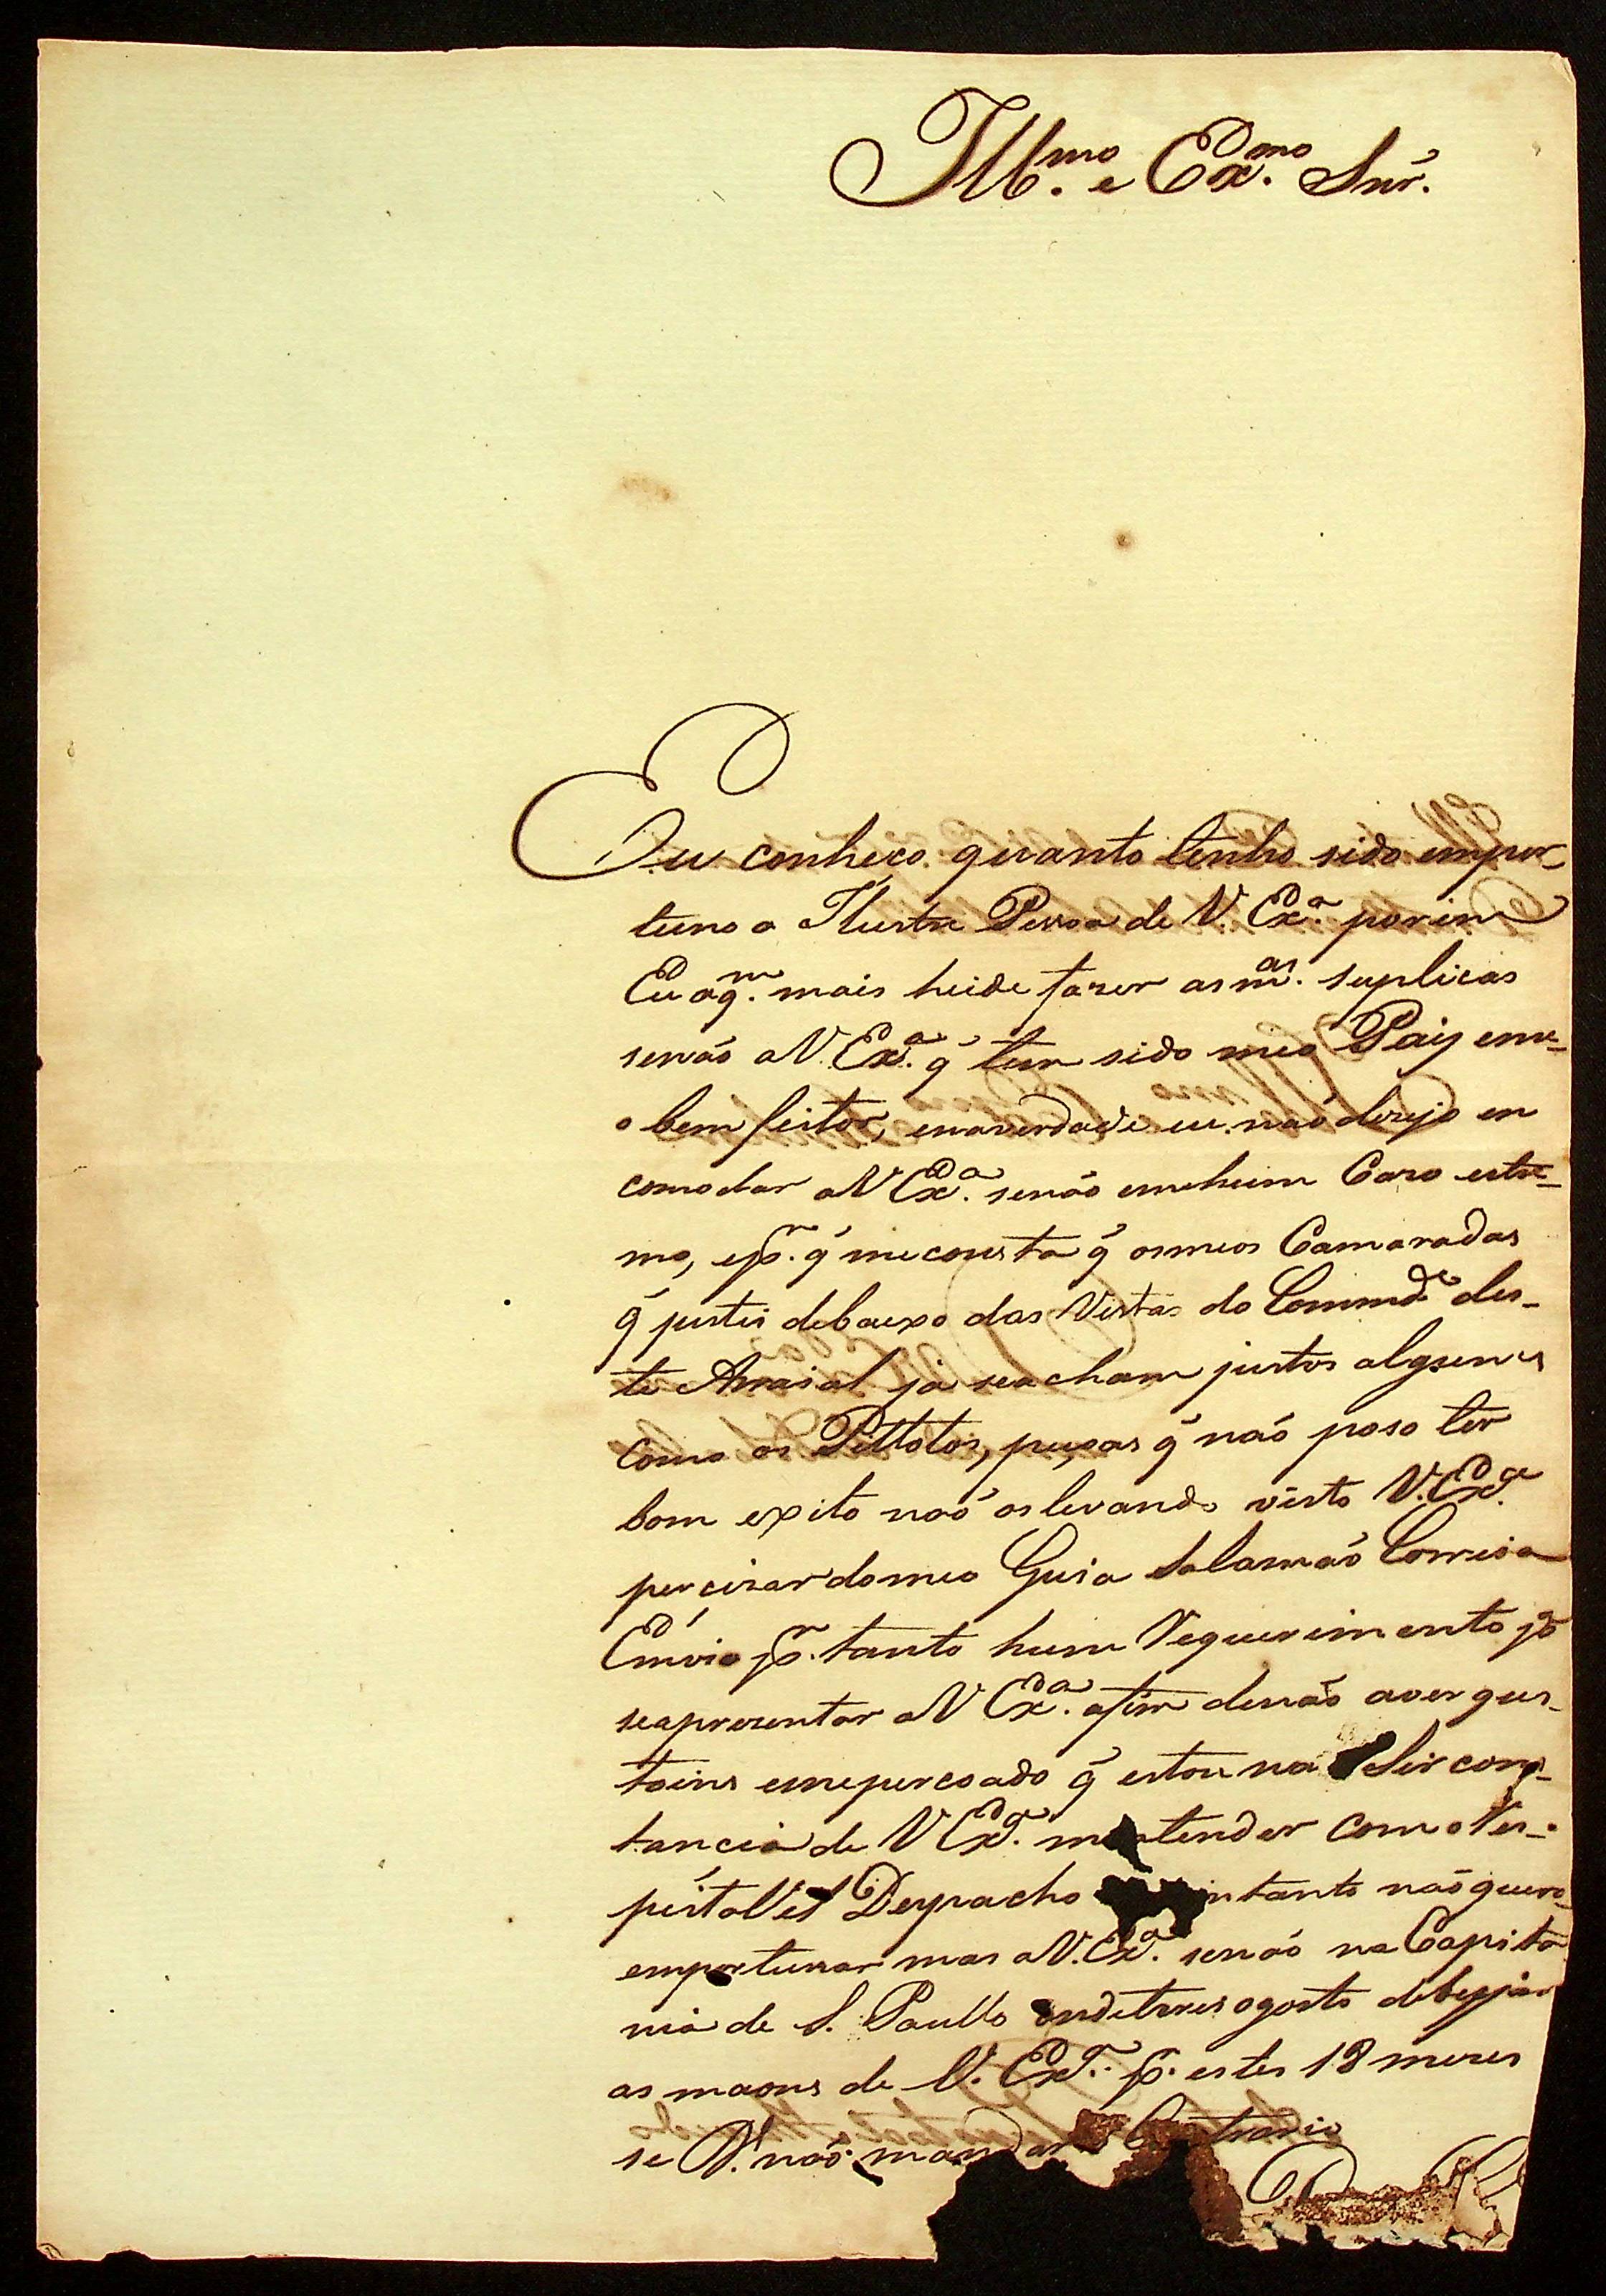 Ill.mo e Ex.mo Snr.
Eu conheço quanto tenho sido empor-
tuno a Ilustre Pessoa de V. Ex.a porem
Eu aq.m mais heide fazer as m.as suplicas
senão aV. Ex.a q̃ tem sido meo Paiy eme-
o bem feitor, enaverdade eu não dezejo en
comodar aV Ex.a senão emhum Cazo estre-
mo, ep.r q̃ meconsta q̃ osmeos Camaradas
q̃ justei debaixo das Vistas do Commde des-
te Arraial já seacham justos alguns
como os Pillotos, pessas q̃ não poso ter
bom exito não oslevando visto V. Ex.a
percizar domeo Guia Salamão Correia
Envio p.r tanto hum Requerimento p.a
seaprezentar aV Ex.a afim denão aver ques-
toins emepercoado q̃ estou na Sircons-
tancia de V Ex.a matender como Res-
peitaVel Despacho intanto não quero
emportunar mas aV. Ex.a senão na Capita
nia de S. Paullo ondeterei ogosto debejar
as maons de V. Ex.a p.r estes 18 mezes
se V. não mandar o Contrario